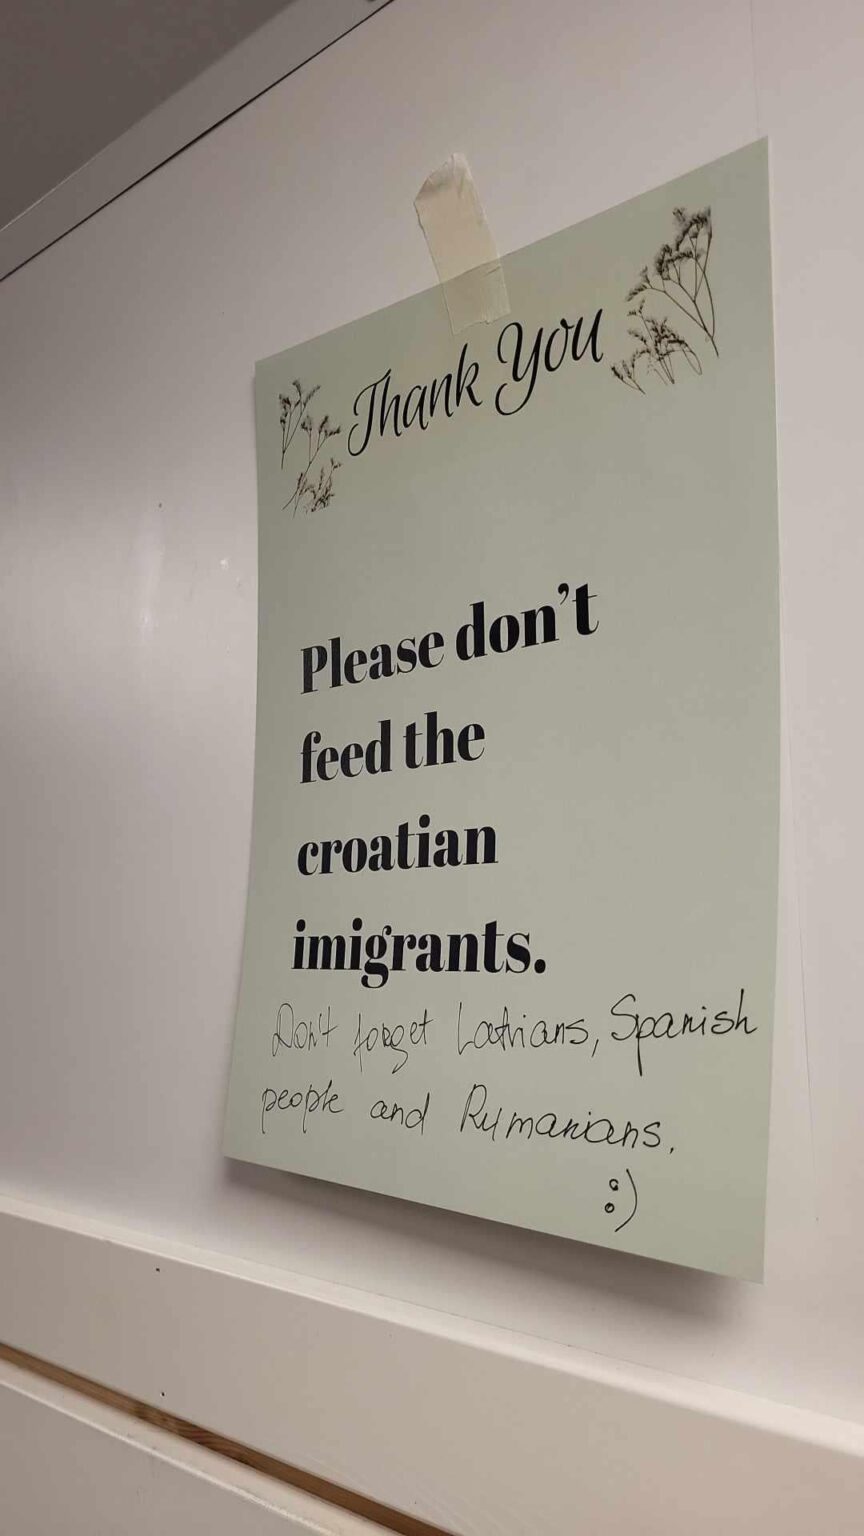 Thank You
Please don't
feed the
croatian
imigrants.
Don't forget Latvians, Spanish
people and Rumanians.
:)